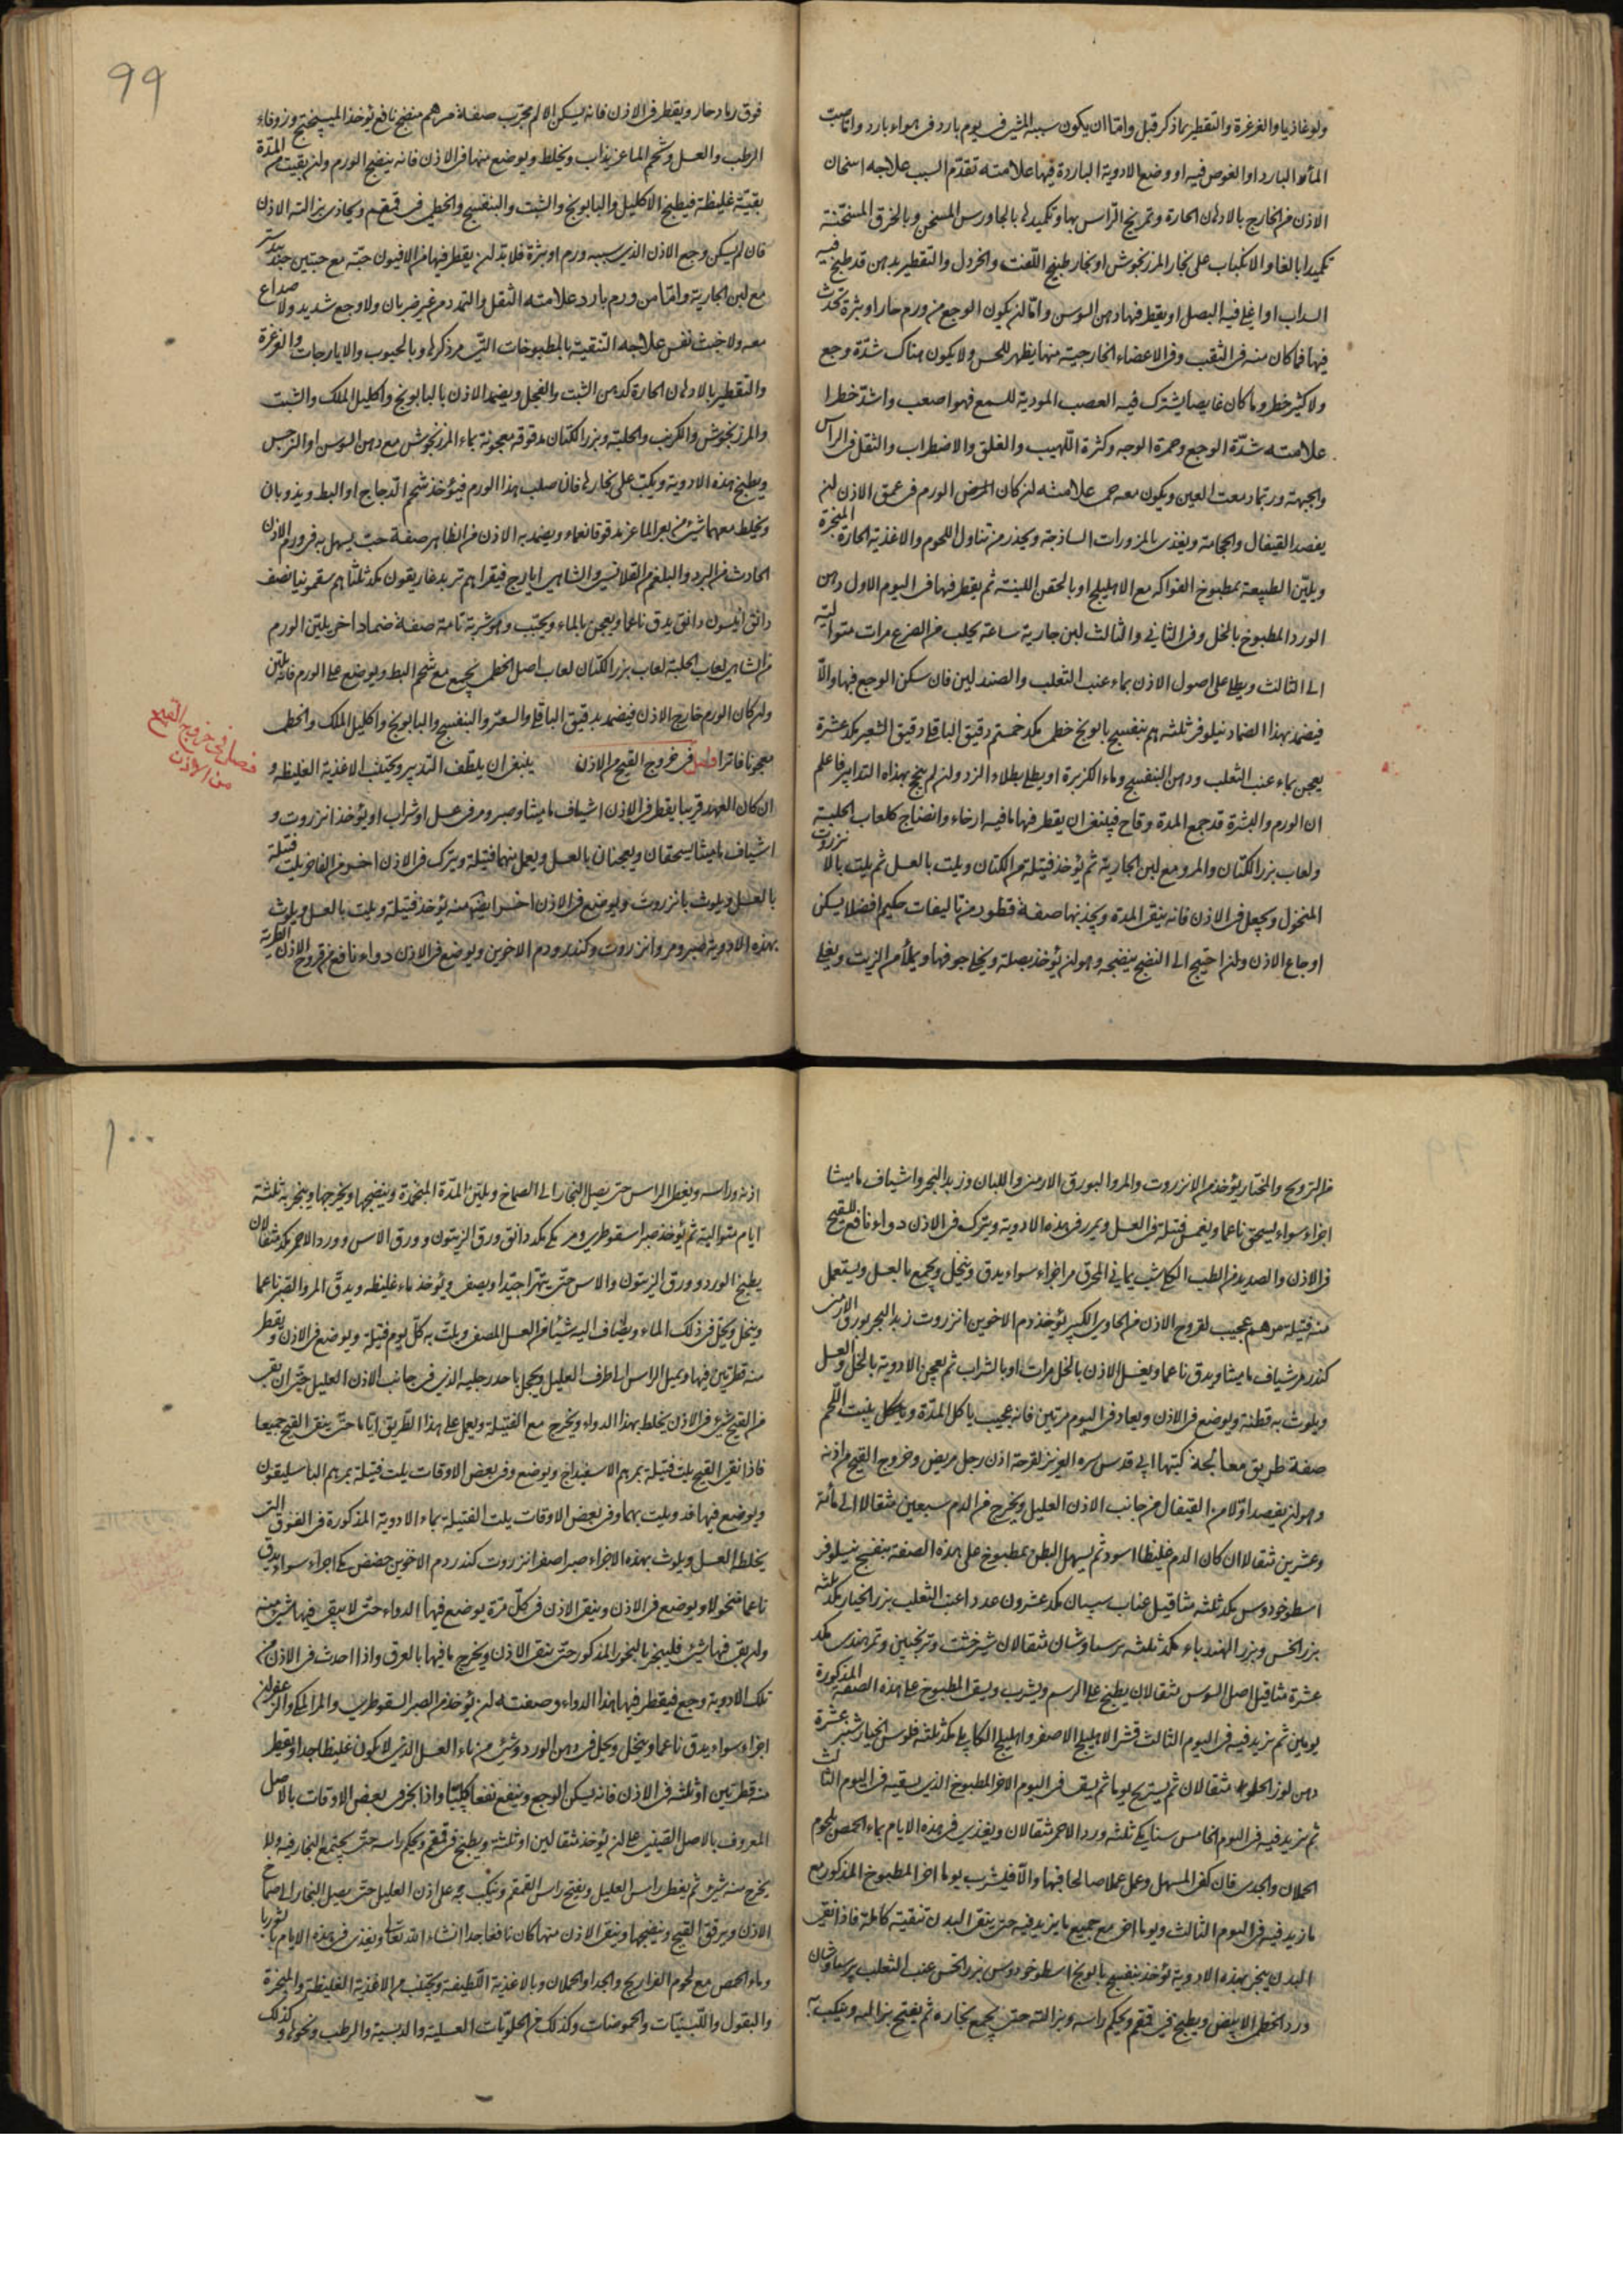 ولوغاذيا والغرغرة والتقطير بما ذكر قبل واما ان يكون سببه المشي في يوم بارد في هواء بارد واما صب
الماء البارد او الغوص فيه او وضع الادوية الباردة فيها علامته تقدم السبب علاجه اسخان
الاذن من الخارج بالادهان الحارة وتمريخ الراس بها وتكميدها بالجاورس المسخن وبالخرق المسخنة
تكميدا بالغا والانكباب على بخار المرزنجوش او بخار طبيخ اللفت والخردل والتقطير بدهن قد طبخ فيه
السداب او اغلي فيه البصل او يقطر فيها دهن السوسن واما لن يكون الوجع من ورم حار او بثرة تحدث
فيها فما كان منه في الثقب وفي الاعضاء الخارجية منها يظهر للحس ولا يكون هناك شدة وجع
ولا كثير خطر وما كان غايصا يشترك فيه العصب المودية للسمع فهو اصعب واشد خطرا
علامته شدة الوجع وحمرة الوجه وكثرة اللهيب والقلق والاضطراب والثقل في الراس
والجبهة وربما دمعت العين ويكون معه حمى علامته لن كان المرض الورم في عمق الاذن لن
يفصد القيفال والحجامة ويغذى بالمزورات الساذجة ويحذر من تناول اللحوم والاغذية الحارة المبخرة
ويلين الطبيعة بمطبوخ الفواكه مع الاهليلج او بالحقن اللينة ثم يقطر فيها في اليوم الاول دهن
الورد المطبوخ بالخل وفي الثاني والثالث لبن جارية ساعة يحلب من الضرع مرات متوالية
الى الثالث ويطلى على اصول الاذن بماء عنب الثعلب والصندلين فان سكن الوجع فيها والا
فيضمد بهذا الضماد نيلوفر ثلثة هم بنفسج بابونج خطمى مكد خمستم دقيق الباقلا دقيق الشعير مكد عشرة
يعجن بماء عنب الثعلب ودهن البنفسج وماء الكزبرة او يطلى بطلاء الزد ولن لم ينجح بهذاه التدابير فاعلم
ان الورم والبثرة قد جمع المدة وقاح فينبغي ان يقطر فيها ما فيه ارخاء وانضاج كلعاب الحلبة
ولعاب بزر الكتان والمرو مع لبن الجارية ثم يؤخذ فتيلة من الكتان ويلت بالعسل ثم يلت بالانزروت
المنخول ويجعل في الاذن فانه ينقي المدة ويجذبها صفة قطور من تاليفات حكيم افضلا يسكن
اوجاع الاذن ولن احتيج الى النضج ينضجه وهو لن يؤخذ بصلة ويخلى جوفها ويملأ من الزيت ويغلى
99
فوق رماد حار ويقطر في الاذن فانه يسكن الالم مجرب صفة مرهم منضج نافع يؤخذ الميبختج وزوفاء
الرطب والعسل وشحم الماعز يذاب ويخلط ويوضع منها في الاذن فانه ينضج الورم ولن بقيت من المدة
بقية غليظة فيطبخ الاكليل والبابونج والشبت والبنفسج والخطمي في قمقم ويحاذى بزالته الاذن
فان لم يسكن وجع الاذن الذى سببه ورم او بثرة فلابد لن يقطر فيها من الافيون حبة مع حبتين جندبيدستر
مع لبن الجارية واما من ورم بارد علامته الثقل والتمدد من غير ضربان ولا وجع شديد ولا صداع
معه ولا خبث نفس علاجه التنقية بالمطبوخات التى مر ذكرها وبالحبوب والايارجات والغرغرة
والتقطير بالادهان الحارة كدهن الشبت والفجل ويضمد الاذن بالبابونج واكليل الملك والشبت
والمرزنجوش والكرنب والحلبة وبزر الكتان مدقوقة معجونة بماء المرزنجوش مع دهن السوسن او النرجس
ويطبخ هذه الادوية ويكب على بخارها فان صلب هذا الورم فيؤخذ شحم الدجاج او البط ويذوبان
ويخلط معهما شئ من بعر الماعز مدقوقا نعماء ويضمد به الاذن من الظاهر صفة حب يسهل به في ورم الاذن
الحادث من البرد والبلغم من القلانسى والشاهى ايارج فيقرا هم تربد غاريقون مكد ثلثاهم سقمونيا نصف
دانق انيسون دانق يدق ناعما ويعجن بالماء ويحبب وهو شربة تامة صفة ضماد اخر يلين الورم
من الشاهى لعاب الحلبة لعاب بزر الكتان لعاب اصل الخطمى يجمع مع شحم البط ويوضع على الورم فانه يلين
ولن كان الورم خارج الاذن فيضمد بدقيق الباقلا والسعتر والبنفسج والبابونج واكليل الملك والخطمى
معجونا فاترا فصل فى خروج القيح من الاذن ينبغى ان يلطف التدبير ويجتنب الاغذية الغليظة و
فصل فى خروج القيح
من الاذن
ان كان العهد قريبا يقطر فى الاذن اشياف ماميثا وصبر ومر فى عسل او شراب او يؤخذ انزروت و
اشياف ماميثا يسحقان ويعجنان بالعسل ويعمل منهما فتيلة ويترك فى الاذن اخر من الفاخر يلت فتيلة
بالعسل ويلوث بانزروت ويوضع فى الاذن اخر ايضا منه يؤخذ فتيلة ويلت بالعسل ويلوث
بهذه الادوية صبر ومر وانزروت وكندر ودم الاخوين ويوضع فى الاذن دواء نافع من قروح الاذن الطرية
من الترويح والمختار يؤخذ من الانزروت والمر والبورق الارمنى واللبان وزبد البحر واشياف ماميثا
اجزاء سواء يسحق ناعما ويغمس فتيلة فى العسل ويمرر فى هذه الادوية ويترك فى الاذن دواء نافع للقيح
فى الاذن والصديد من الطب الكلى شب يمانى المحرق مر اجزاء سواء يدق وينخل ويجمع بالعسل ويستعمل
منه فتيلة مرهم عجيب لقروح الاذن من الحاوى الكبير يؤخذ دم الاخوين انزروت زبد البحر بورق الارمنى
كندر مر شياف ماميثا ويدق ناعما ويغسل الاذن بالخل مرات او بالشراب ثم يعجن الادوية بالخل والعسل
ويلوث به قطنة ويوضع فى الاذن ويعاد فى اليوم مرتين فانه عجيب ياكل المدة وياكل ينبت اللحم
صفة طريق معالجة كتبها ابى قدس سره العزيز لقرحة اذن رجل مريض وخروج القيح من اذنه
وهو لن يفصد اولا من القيفال من جانب الاذن العليل ويخرج من الدم سبعين مثقالا الى مائة
وعشرين مثقالا ان كان الدم غليظا اسود ثم يسهل البطن بمطبوخ على هذه الصفة بنفسج نيلوفر
اسطوخودوس مكد ثلثه مثاقيل عناب سپستان مكد عشرون عددا عنب الثعلب بزر الخيار مكد ثلثه
بزر الخس وبزر الهندباء مكد ثلثه پرسياوشان مثقالان شيرخشت وترنجبين وتمر هندى مكد
عشرة مثاقيل اصل السوس مثقالان يطبخ على الرسم ويشرب ويسقى المطبوخ على هذه الصفة المذكورة
يومين ثم يزيد فيه فى اليوم الثالث قشر الاهليلج الاصفر واهليلج الكابلى مكد ثلثه فلوس الخيارشنبر عشرة
دهن لوز الحلو مثقالان ثم يستريح يوما ثم يسقى فى اليوم الاخر المطبوخ الذى يسقيه فى اليوم الثالث
ثم يزيد فيه فى اليوم الخامس سنا مكى ثلثه ورد الاحمر مثقالان ويغذى فى هذه الايام بماء الحمص بلحوم
الحملان والجدى فان كفى المسهل وعمل عملا صالحا فبها والا فليشرب يوما اخر المطبوخ المذكور مع
ما زيد فيه فى اليوم الثالث ويوما اخر مع جميع ما يزيد فيه حتى ينقى البدن تنقية كاملة فاذا نقى
البدن يبخر بهذه الادوية يؤخذ بنفسج بابونج اسطوخودوس بزر الخس عنب الثعلب پرسياوشان
ورد الخطمى الابيض ويطبخ فى قمقم ويحكم راسه وبزالته حتى يجمع بخاره ثم يفتح بزاله ويكب به
١٠٠
اذنه وراسه ويغطى الراس حتى يصل البخار الى الصماخ ويلين المدة المنجمدة وينضجها ويخرجها ويبخر به ثلثة
ايام متوالية ثم يؤخذ صبر اسقوطرى ومر مكى مكد دانق ورق الزيتون وورق الاس وورد الاحمر مكد مثقالان
يطبخ الورد وورق الزيتون والاس حتى يتهرا جيدا ويصفى ويؤخذ ماء غليظه ويدق المر والصبر ناعما
وينخل ويحل فى ذلك الماء ويضاف اليه شيئا من العسل المصفى ويلت به كل يوم فتيلة ويوضع فى الاذن ويقطر
منه قطرتين فيها ويميل الراس الى طرف العليل ويحجل باحد رجليه الذى فى جانب الاذن العليل حتى ان بقى
من القيح شئ فى الاذن يخلط بهذا الدواء ويخرج مع الفتيلة ويعمل على هذا الطريق اياما حتى ينقى القيح جميعا
فاذا نقى القيح يلت فتيلة بمرهم الاسفيداج ويوضع وفى بعض الاوقات يلت فتيلة بمرهم الباسليقون
ويوضع فيها قد ويلت بهما وفى بعض الاوقات يلت الفتيلة بماء الادوية المذكورة فى الفوق التى
يخلط العسل ويلوث بهذه الاجزاء صبر اصفر انزروت كندر دم الاخوين حضض مكى اجزاء سواء يدق
ناعما منخولا ويوضع فى الاذن وينقى الاذن فى كل مرة يوضع فيها الدواء حتى لا يبقى فيها شئ منه
ولن بقى فيها شئ فليبخر بالبخور المذكور حتى ينقى الاذن ويخرج ما فيها بالعرق واذا احدث فى الاذن من
تلك الادوية وجع فيقطر فيها هذا الدواء وصفته لن يؤخذ من الصبر السقوطرى والمر المكى والزعفران
اجزاء سواء يدق ناعما وينخل ويحل فى دهن الورد وشئ من ماء العسل الذى لا يكون غليظا جدا ويقطر
منه قطرتين او ثلثه فى الاذن فانه يسكن الوجع وينفع نفعا كليا واذا بخر فى بعض الاوقات بالاصل
المعروف بالاصل القينى على لن يؤخذ مثقالين او ثلثة ويطبخ فى قمقم ويحكم راسه حتى يجتمع البخار فيه ولا
يخرج منه شئ ثم يغطى راس العليل ويفتح راس القمقم وينكب به على اذن العليل حتى يصل البخار الى صماخ
الاذن ويرقق القيح وينضجها وينقى الاذن منها كان نافعا جدا انشاء الله تعالى ويغذى فى هذه الايام بالشوربا
وماء الحمص مع لحوم الفراريج والجدا والحملان وبالاغذية اللطيفة ويجتنب من الاغذية الغليظة والمبخرة
والبقول واللبنيات والحموضات وكذلك من الحلويات العسلية والدبسية والرطب ونحوها وكذلك